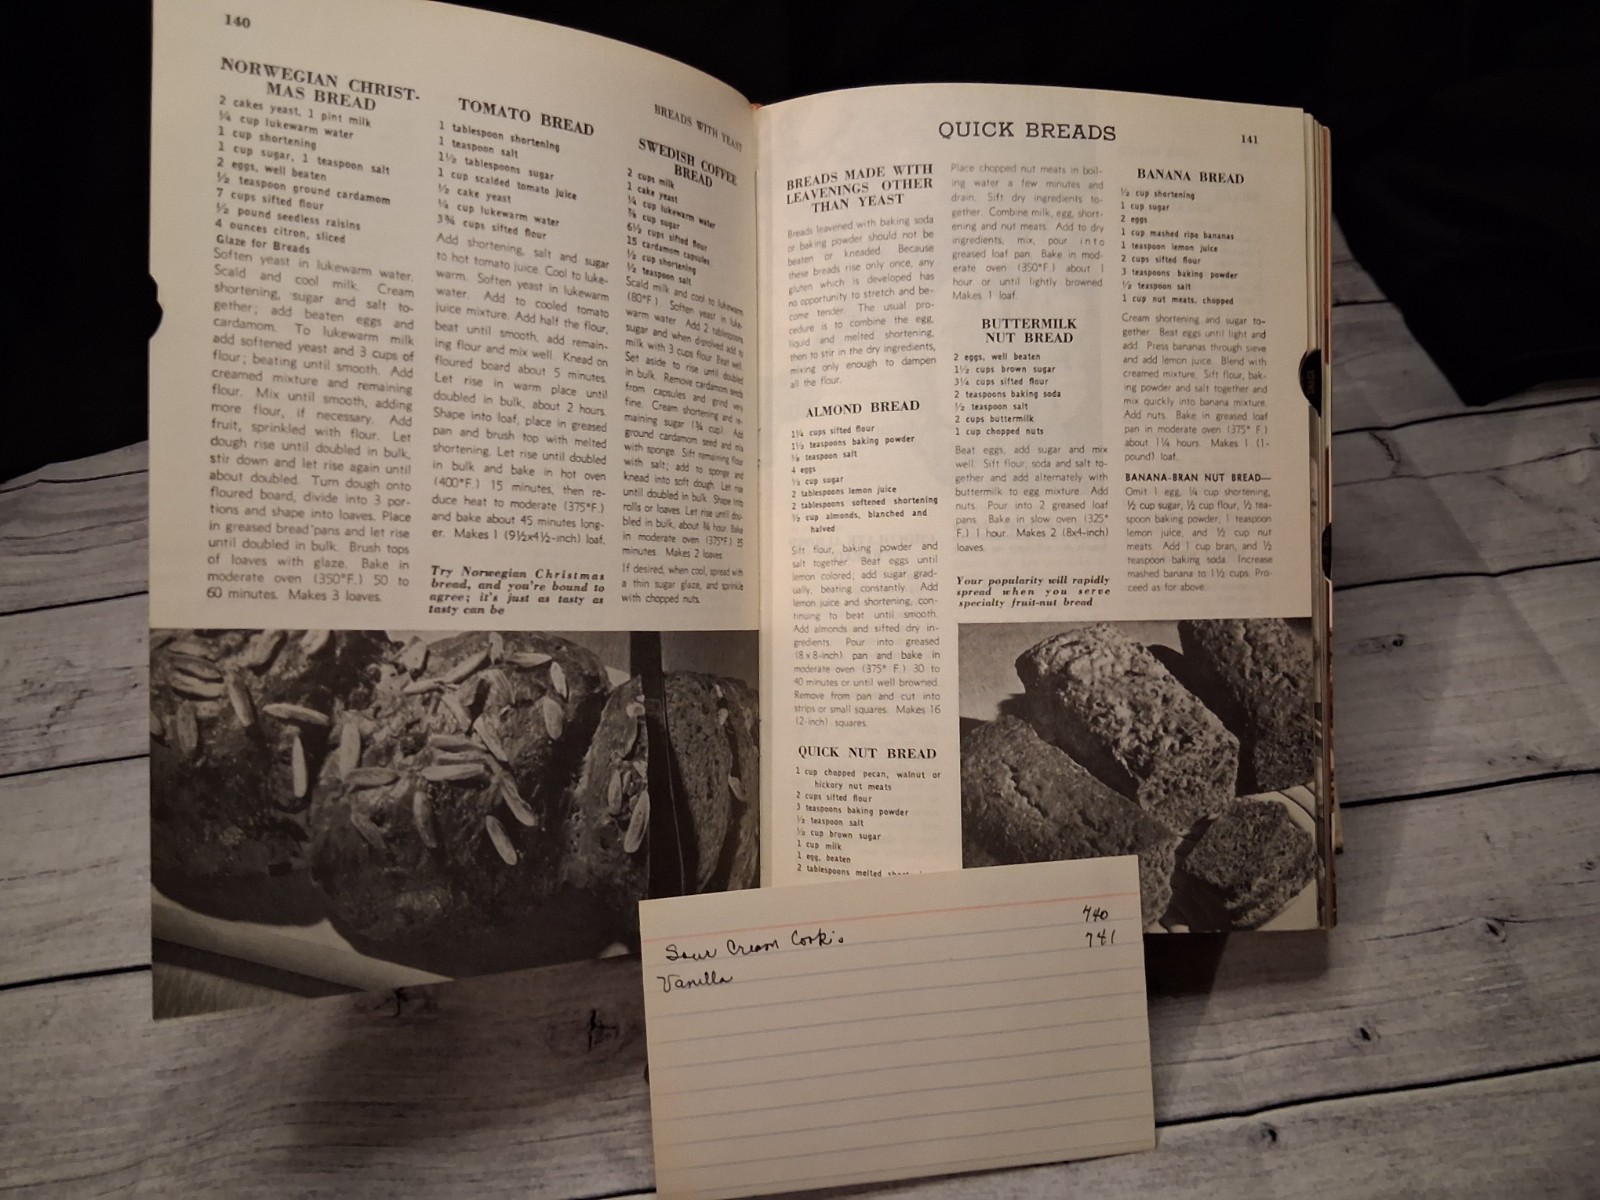 140
NORWEGIAN CHRIST-
MAS BREAD
2 cakes yeast, 1 pint milk
¼ cup lukewarm water
1 cup shortening
1 cup sugar, 1 teaspoon salt
2 eggs, well beaten
½ teaspoon ground cardamom
7 cups sifted flour
½ pound seedless raisins
4 ounces citron, sliced
Glaze for Breads
Soften yeast in lukewarm water.
Scald and cool milk. Cream
shortening, sugar and salt to-
gether; add beaten eggs and
cardamom. To lukewarm milk
add softened yeast and 3 cups of
flour; beating until smooth. Add
creamed mixture and remaining
flour. Mix until smooth, adding
more flour, if necessary. Add
fruit, sprinkled with flour. Let
dough rise until doubled in bulk,
stir down and let rise again until
about doubled. Turn dough onto
floured board, divide into 3 por-
tions and shape into loaves. Place
in greased bread pans and let rise
until doubled in bulk. Brush tops
of loaves with glaze. Bake in
moderate oven (350°F.) 50 to
60 minutes. Makes 3 loaves.
TOMATO BREAD
1 tablespoon shortening
1 teaspoon salt
1½ tablespoons sugar
1 cup scalded tomato juice
½ cake yeast
¼ cup lukewarm water
3¾ cups sifted flour
Add shortening, salt and sugar
to hot tomato juice. Cool to luke-
warm. Soften yeast in lukewarm
water. Add to cooled tomato
juice mixture. Add half the flour,
beat until smooth, add remain-
ing flour and mix well. Knead on
floured board about 5 minutes.
Let rise in warm place until
doubled in bulk, about 2 hours.
Shape into loaf, place in greased
pan and brush top with melted
shortening. Let rise until doubled
in bulk and bake in hot oven
(400°F.) 15 minutes, then re-
duce heat to moderate (375°F.)
and bake about 45 minutes long-
er. Makes 1 (9½x4½-inch) loaf.
Try Norwegian Christmas
bread, and you're bound to
agree; it's just as tasty as
tasty can be
BREADS WITH YEAST
SWEDISH COFFEE
BREAD
2 cups milk
1 cake yeast
¼ cup lukewarm water
⅞ cup sugar
6½ cups sifted flour
15 cardamom capsules
½ cup shortening
½ teaspoon salt
Scald milk and cool to lukewarm
(80°F.). Soften yeast in luke-
warm water. Add 2 tablespoons
sugar and when dissolved add to
milk with 3 cups flour. Beat well.
Set aside to rise until doubled
in bulk. Remove cardamom seeds
from capsules and grind very
fine. Cream shortening and re-
maining sugar (¾ cup). Add
ground cardamom seed and mix
with sponge. Sift remaining flour
with salt; add to sponge and
knead into soft dough. Let rise
until doubled in bulk. Shape into
rolls or loaves. Let rise until dou-
bled in bulk, about ¾ hour. Bake
in moderate oven (375°F.) 35
minutes. Makes 2 loaves.
If desired, when cool, spread with
a thin sugar glaze, and sprinkle
with chopped nuts.
QUICK BREADS
141
BREADS MADE WITH
LEAVENINGS OTHER
THAN YEAST
Breads leavened with baking soda
or baking powder should not be
beaten or kneaded. Because
these breads rise only once, any
gluten which is developed has
no opportunity to stretch and be-
come tender. The usual pro-
cedure is to combine the egg,
liquid and melted shortening,
then to stir in the dry ingredients,
mixing only enough to dampen
all the flour.
ALMOND BREAD
1¼ cups sifted flour
1½ teaspoons baking powder
½ teaspoon salt
4 eggs
⅓ cup sugar
2 tablespoons lemon juice
2 tablespoons softened shortening
½ cup almonds, blanched and
halved
Sift flour, baking powder and
salt together. Beat eggs until
lemon colored; add sugar grad-
ually, beating constantly. Add
lemon juice and shortening, con-
tinuing to beat until smooth.
Add almonds and sifted dry in-
gredients. Pour into greased
(8x8-inch) pan and bake in
moderate oven (375° F.) 30 to
40 minutes or until well browned.
Remove from pan and cut into
strips or small squares. Makes 16
(2-inch) squares.
QUICK NUT BREAD
1 cup chopped pecan, walnut or
hickory nut meats
2 cups sifted flour
3 teaspoons baking powder
½ teaspoon salt
½ cup brown sugar
1 cup milk
1 egg, beaten
2 tablespoons melted
Place chopped nut meats in boil-
ing water a few minutes and
drain. Sift dry ingredients to-
gether. Combine milk, egg, short-
ening and nut meats. Add to dry
ingredients, mix, pour into
greased loaf pan. Bake in mod-
erate oven (350°F.) about 1
hour or until lightly browned.
Makes 1 loaf.
BUTTERMILK
NUT BREAD
2 eggs, well beaten
1½ cups brown sugar
3¼ cups sifted flour
2 teaspoons baking soda
½ teaspoon salt
2 cups buttermilk
1 cup chopped nuts
Beat eggs, add sugar and mix
well. Sift flour, soda and salt to-
gether and add alternately with
buttermilk to egg mixture. Add
nuts. Pour into 2 greased loaf
pans. Bake in slow oven (325°
F.) 1 hour. Makes 2 (8x4-inch)
loaves.
Your popularity will rapidly
spread when you serve
specialty fruit-nut bread
BANANA BREAD
½ cup shortening
1 cup sugar
2 eggs
1 cup mashed ripe bananas
1 teaspoon lemon juice
2 cups sifted flour
3 teaspoons baking powder
½ teaspoon salt
1 cup nut meats, chopped
Cream shortening and sugar to-
gether. Beat eggs until light and
add. Press bananas through sieve
and add lemon juice. Blend with
creamed mixture. Sift flour, bak-
ing powder and salt together and
mix quickly into banana mixture.
Add nuts. Bake in greased loaf
pan in moderate oven (375° F.)
about 1¼ hours. Makes 1 (1-
pound) loaf.
BANANA-BRAN NUT BREAD—
Omit 1 egg, ¼ cup shortening,
½ cup sugar, ½ cup flour, ½ tea-
spoon baking powder, 1 teaspoon
lemon juice, and ½ cup nut
meats. Add 1 cup bran, and ½
teaspoon baking soda. Increase
mashed banana to 1½ cups. Pro-
ceed as for above.
740
Sour Cream Cookis 741
Vanilla